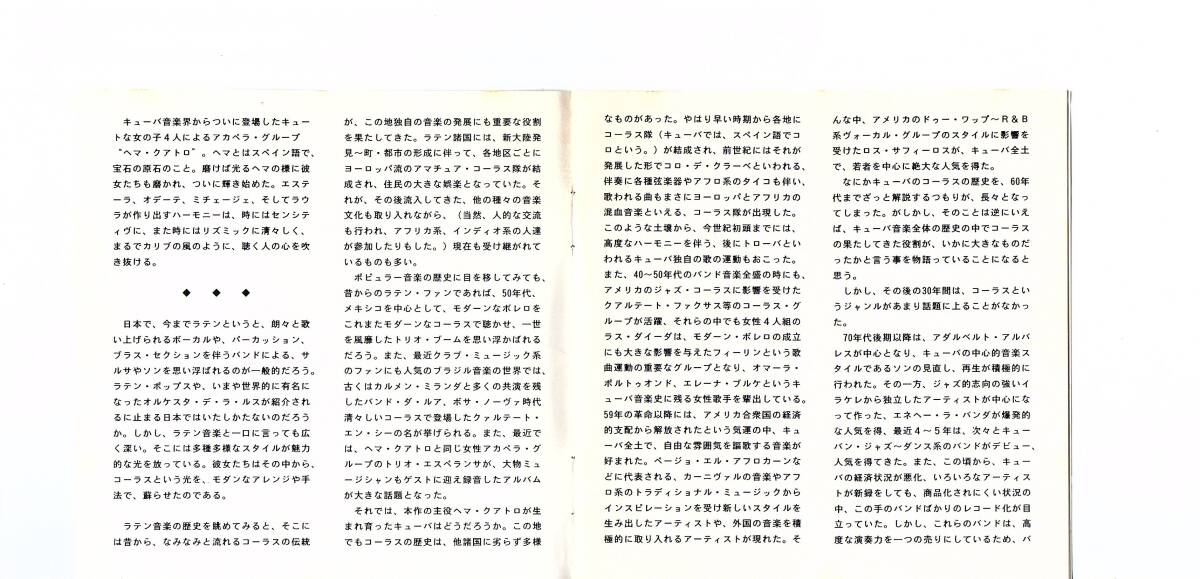 キューバ音楽界からついに登場したキュー
トな女の子４人によるアカペラ・グループ
“ヘマ・クアトロ”。ヘマとはスペイン語で、
宝石の原石のこと。磨けば光るヘマの様に彼
女たちも磨かれ、ついに輝き始めた。エステ
ーラ、オデーテ、ミチェージェ、そしてラウ
ラが作り出すハーモニーは、時にはセンシテ
ィヴに、また時にはリズミックに清々しく、
まるでカリブの風のように、聴く人の心を吹
き抜ける。
◆ ◆ ◆
日本で、今までラテンというと、朗々と歌
い上げられるボーカルや、パーカッション、
ブラス・セクションを伴うバンドによる、サ
ルサやソンを思い浮ばれるのが一般的だろう。
ラテン・ポップスや、いまや世界的に有名に
なったオルケスタ・デ・ラ・ルスが紹介され
るに止まる日本ではいたしかたないのだろう
か。しかし、ラテン音楽と一口に言っても広
く深い。そこには多種多様なスタイルが魅力
的な光を放っている。彼女たちはその中から、
コーラスという光を、モダンなアレンジや手
法で、蘇らせたのである。
ラテン音楽の歴史を眺めてみると、そこに
は昔から、なみなみと流れるコーラスの伝統
が、この地独自の音楽の発展にも重要な役割
を果たしてきた。ラテン諸国には、新大陸発
見〜町・都市の形成に伴って、各地区ごとに
ヨーロッパ流のアマチュア・コーラス隊が結
成され、住民の大きな娯楽となっていた。そ
れが、その後流入してきた、他の種々の音楽
文化も取り入れながら、（当然、人的な交流
も行われ、アフリカ系、インディオ系の人達
が参加したりもした。）現在も受け継がれて
いるものも多い。
ポピュラー音楽の歴史に目を移してみても、
昔からのラテン・ファンであれば、50年代、
メキシコを中心として、モダンなボレロを
これまたモダーンなコーラスで聴かせ、一世
を風靡したトリオ・ブームを思い浮かばれる
だろう。また、最近クラブ・ミュージック系
のファンにも人気のブラジル音楽の世界では、
古くはカルメン・ミランダと多くの共演を残
したバンド・ダ・ルア、ボサ・ノーヴァ時代
清々しいコーラスで登場したクァルテート・
エン・シーの名が挙げられる。また、最近で
は、ヘマ・クアトロと同じ女性アカペラ・グ
ループのトリオ・エスペランサが、大物ミュ
ージシャンもゲストに迎え録音したアルバム
が大きな話題となった。
それでは、本作の主役ヘマ・クアトロが生
まれ育ったキューバはどうだろうか。この地
でもコーラスの歴史は、他諸国に劣らず多様
なものがあった。やはり早い時期から各地に
コーラス隊（キューバでは、スペイン語でコ
ロという。）が結成され、前世紀にはそれが
発展した形でコロ・デ・クラーベといわれる、
伴奏に各種弦楽器やアフロ系のタイコも伴い、
歌われる曲もまさにヨーロッパとアフリカの
混血音楽といえる、コーラス隊が出現した。
このような土壌から、今世紀初頭までには、
高度なハーモニーを伴う、後にトローバとい
われるキューバ独自の歌の運動もおこった。
また、40〜50年代のバンド音楽全盛の時にも、
アメリカのジャズ・コーラスに影響を受けた
クアルテート・ファクサス等のコーラス・グ
ループが活躍、それらの中でも女性４人組の
ラス・ダイーダは、モダーン・ボレロの成立
にも大きな影響を与えたフィーリンという歌
曲運動の重要なグループとなり、オマーラ・
ポルトゥオンド、エレーナ・ブルケというキ
ューバ音楽史に残る女性歌手を輩出している。
59年の革命以降には、アメリカ合衆国の経済
的支配から解放されたという気運の中、キュ
ーバ全土で、自由な雰囲気を謳歌する音楽が
好まれた。ページョ・エル・アフロカーンな
どに代表される、カーニヴァルの音楽やアフ
ロ系のトラディショナル・ミュージックから
インスピレーションを受け新しいスタイルを
生み出したアーティストや、外国の音楽を積
極的に取り入れるアーティストが現れた。そ
んな中、アメリカのドゥー・ワップ〜Ｒ＆Ｂ
系ヴォーカル・グループのスタイルに影響を
受けたロス・サフィーロスが、キューバ全土
で、若者を中心に絶大な人気を得た。
なにかキューバのコーラスの歴史を、60年
代までざっと解説するつもりが、長々となっ
てしまった。がしかし、そのことは逆にいえ
ば、キューバ音楽全体の歴史の中でコーラス
の果たしてきた役割が、いかに大きなものだ
ったかと言う事を物語っていることになると
思う。
しかし、その後の30年間は、コーラスとい
うジャンルがあまり話題に上ることがなかっ
た。
70年代後期以降は、アダルベルト・アルバ
レスが中心となり、キューバの中心的音楽ス
タイルであるソンの見直し、再生が積極的に
行われた。その一方、ジャズ的志向の強いイ
ラケレから独立したアーティストが中心にな
って作った、エネヘー・ラ・バンダが爆発的
な人気を得、最近４〜５年は、次々とキュー
バン・ジャズ〜ダンス系のバンドがデビュー、
人気を得てきた。また、この頃から、キュー
バの経済状況が悪化、いろいろなアーティス
トが新録をしても、商品化されにくい状況の
中、この手のバンドばかりのレコード化が目
立っていた。しかし、これらのバンドは、高
度な演奏力を一つの売りにしているため、バ